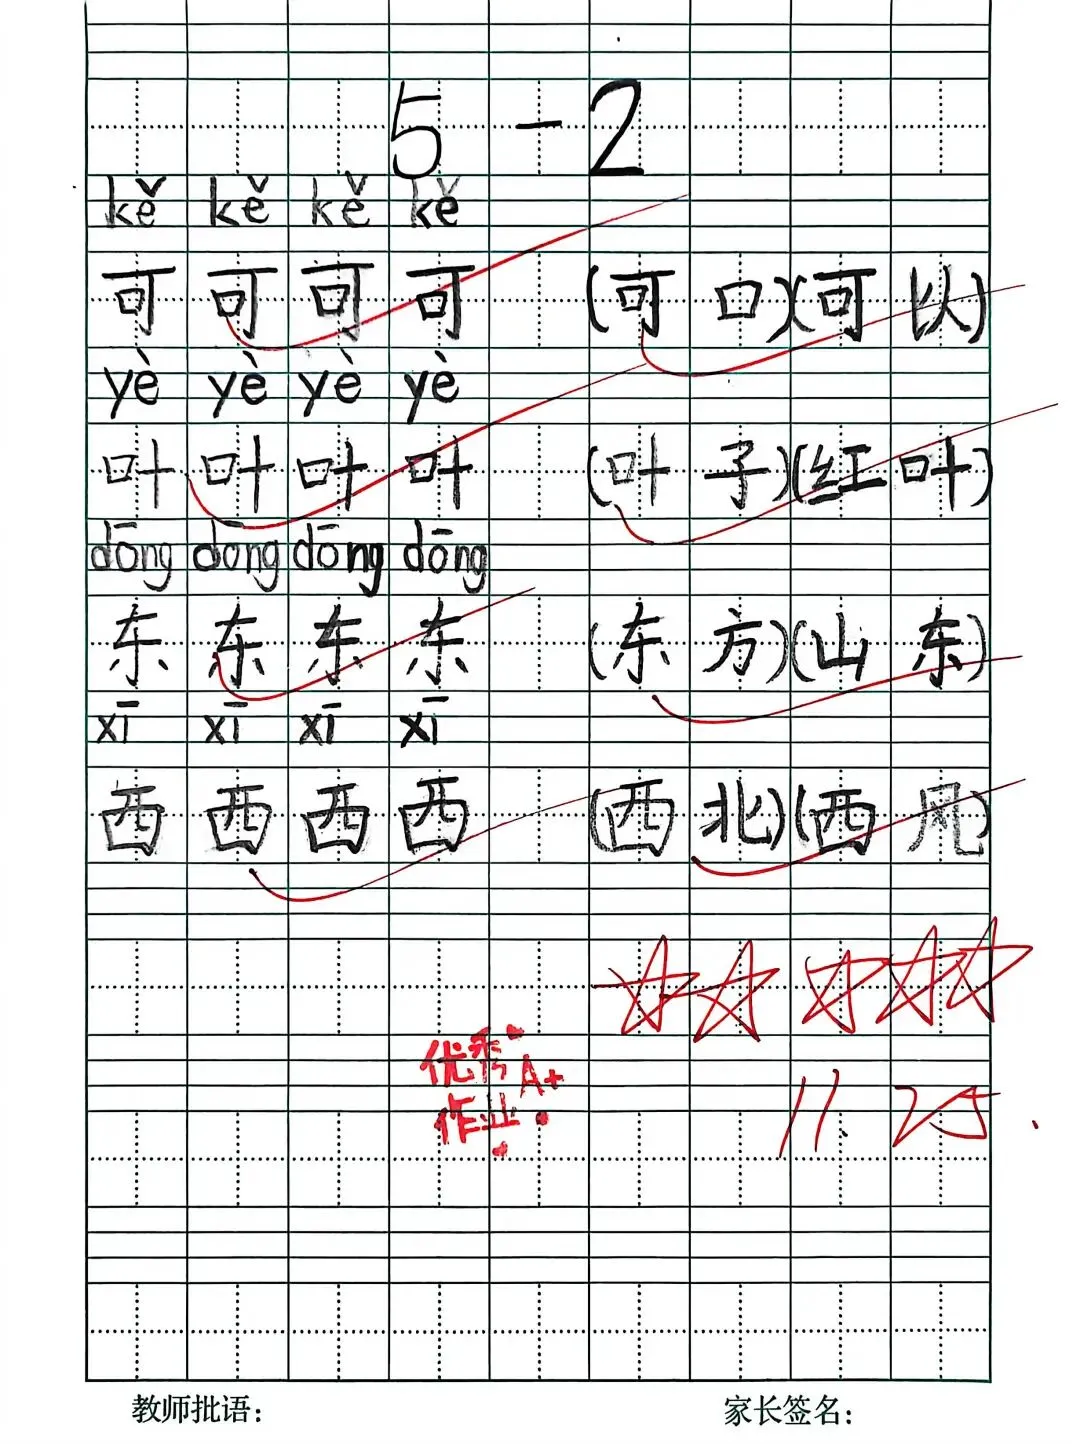 5-2
kě kě kě kě
可 可 可 可 (可口)(可以)
yè yè yè yè
叶 叶 叶 叶 (叶子)(红叶)
dōng dōng dōng dōng
东 东 东 东 (东方)(山东)
xī xī xī xī
西 西 西 西 (西北)(西风)
优秀 A+
作业
11.25
教师批语：
家长签名：